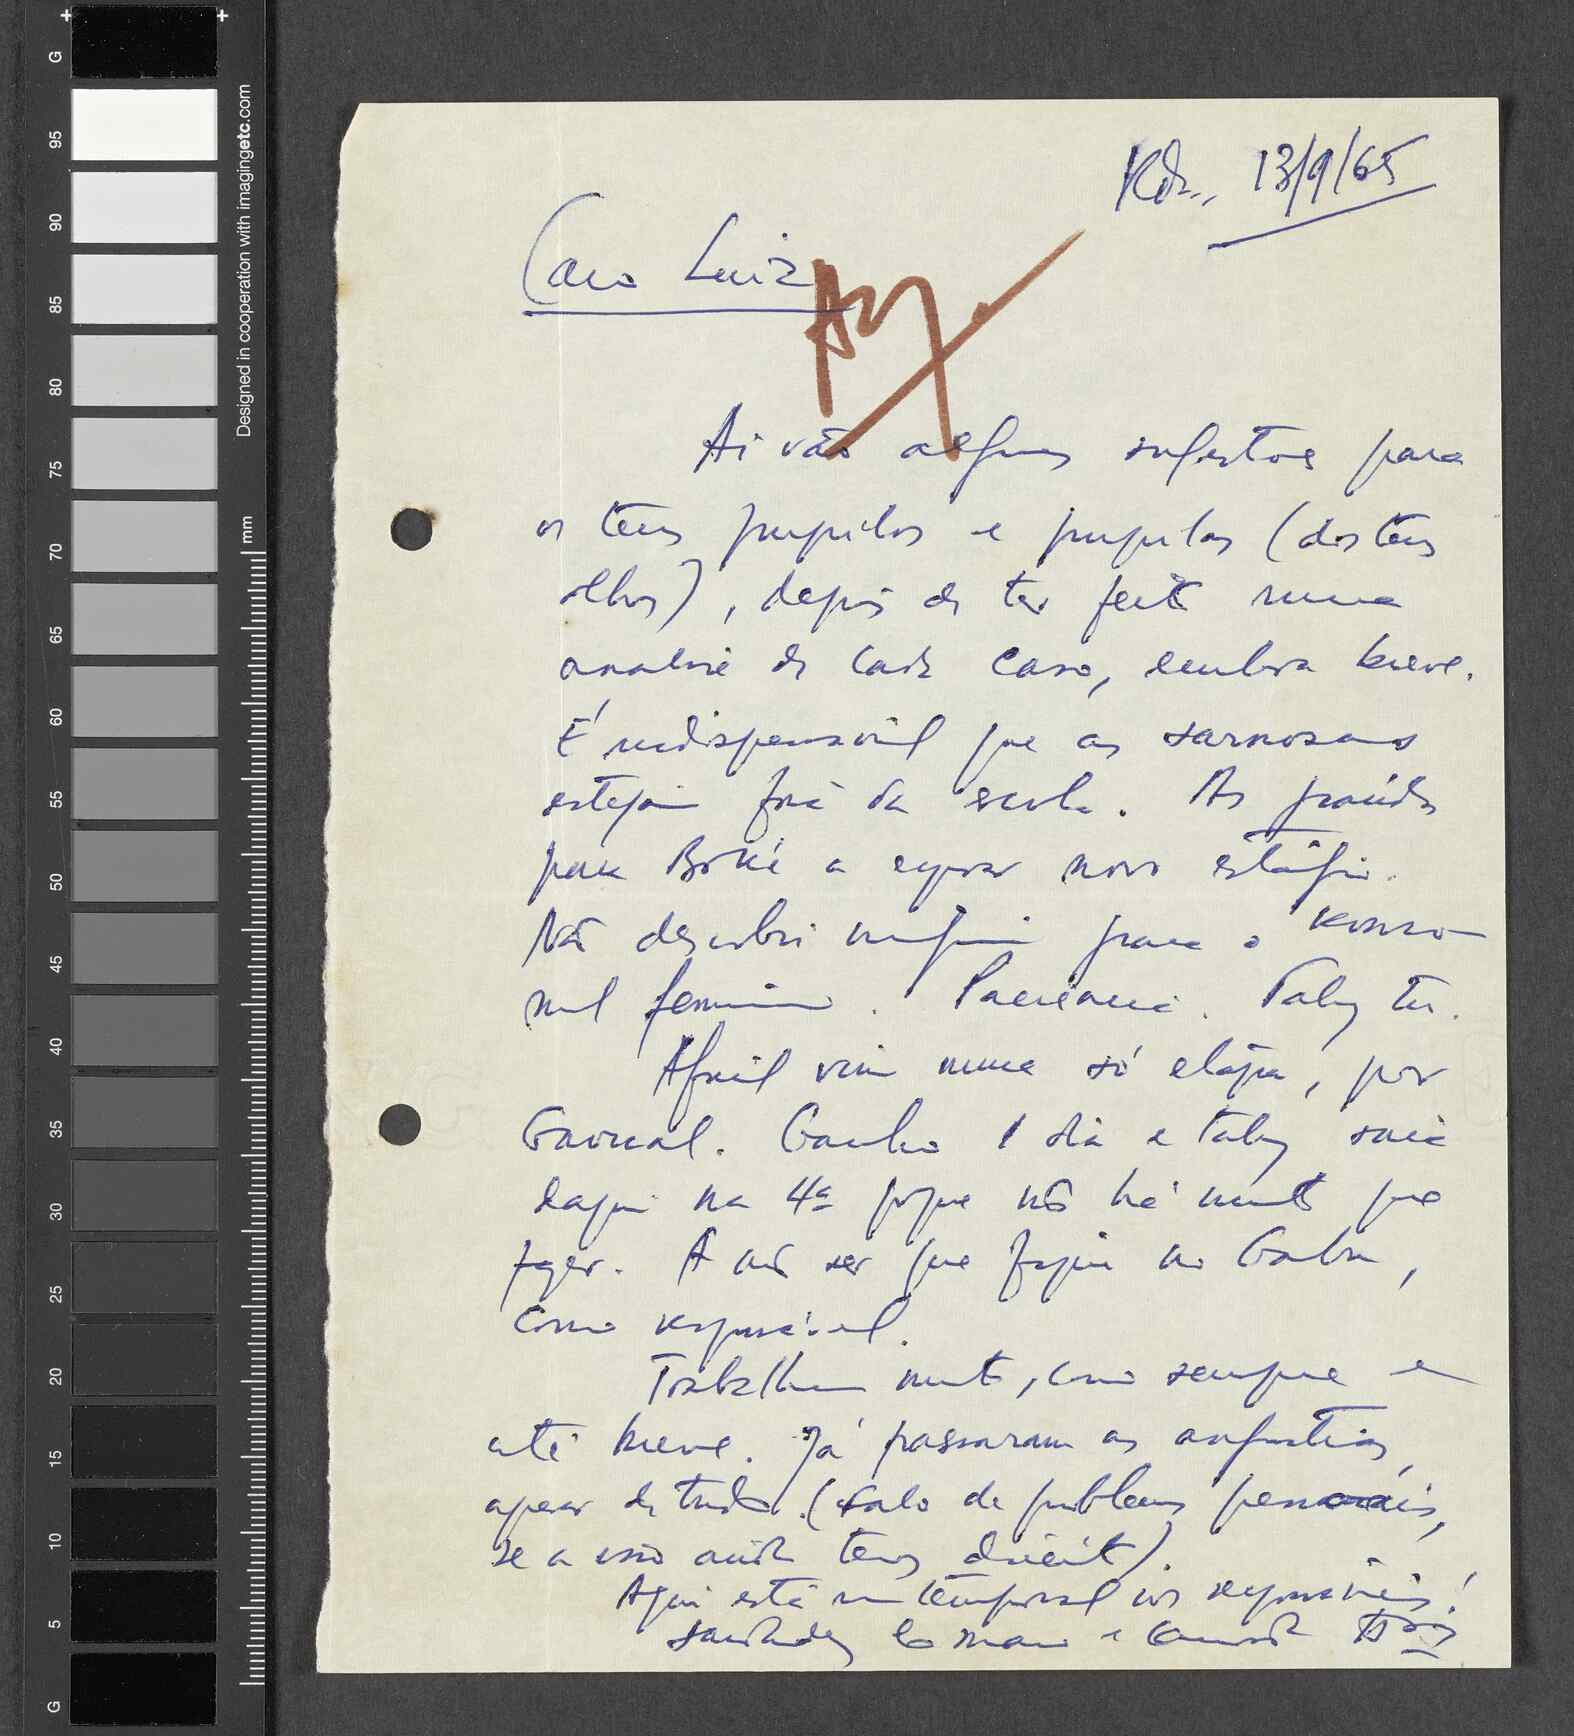 G
95
90
85
80
75
70
65
60
55
50
45
40
35
30
25
20
15
10
5
G
Designed in cooperation with imagingetc.com
mm
Kdr., 13/9/65
Caro Luiz
Ai vão algumas para
os teus pupilos e pupilas (dos teus
olhos), depois de ter feito numa
analise de cada caso, embora breve.
É indispensável que as
estejam fora da escola. As
para Boké a esperar novo estágio.
Não descobri ninguém para o
feminino. Paciencia. Talvez tu.
Afinal vim numa só etapa, por
Gaoual. Ganho 1 dia e talvez saia
daqui na 4ª porque não há muito que
fazer. A não ser que fique no Gabu,
como responsável.
Trabalhem muito, como sempre e
até breve. Já passaram as angustias,
apesar de tudo. (falo de problemas pessoais,
se a isso ainda temos direito).
Aqui está um temporal dos responsáveis!
Saudades